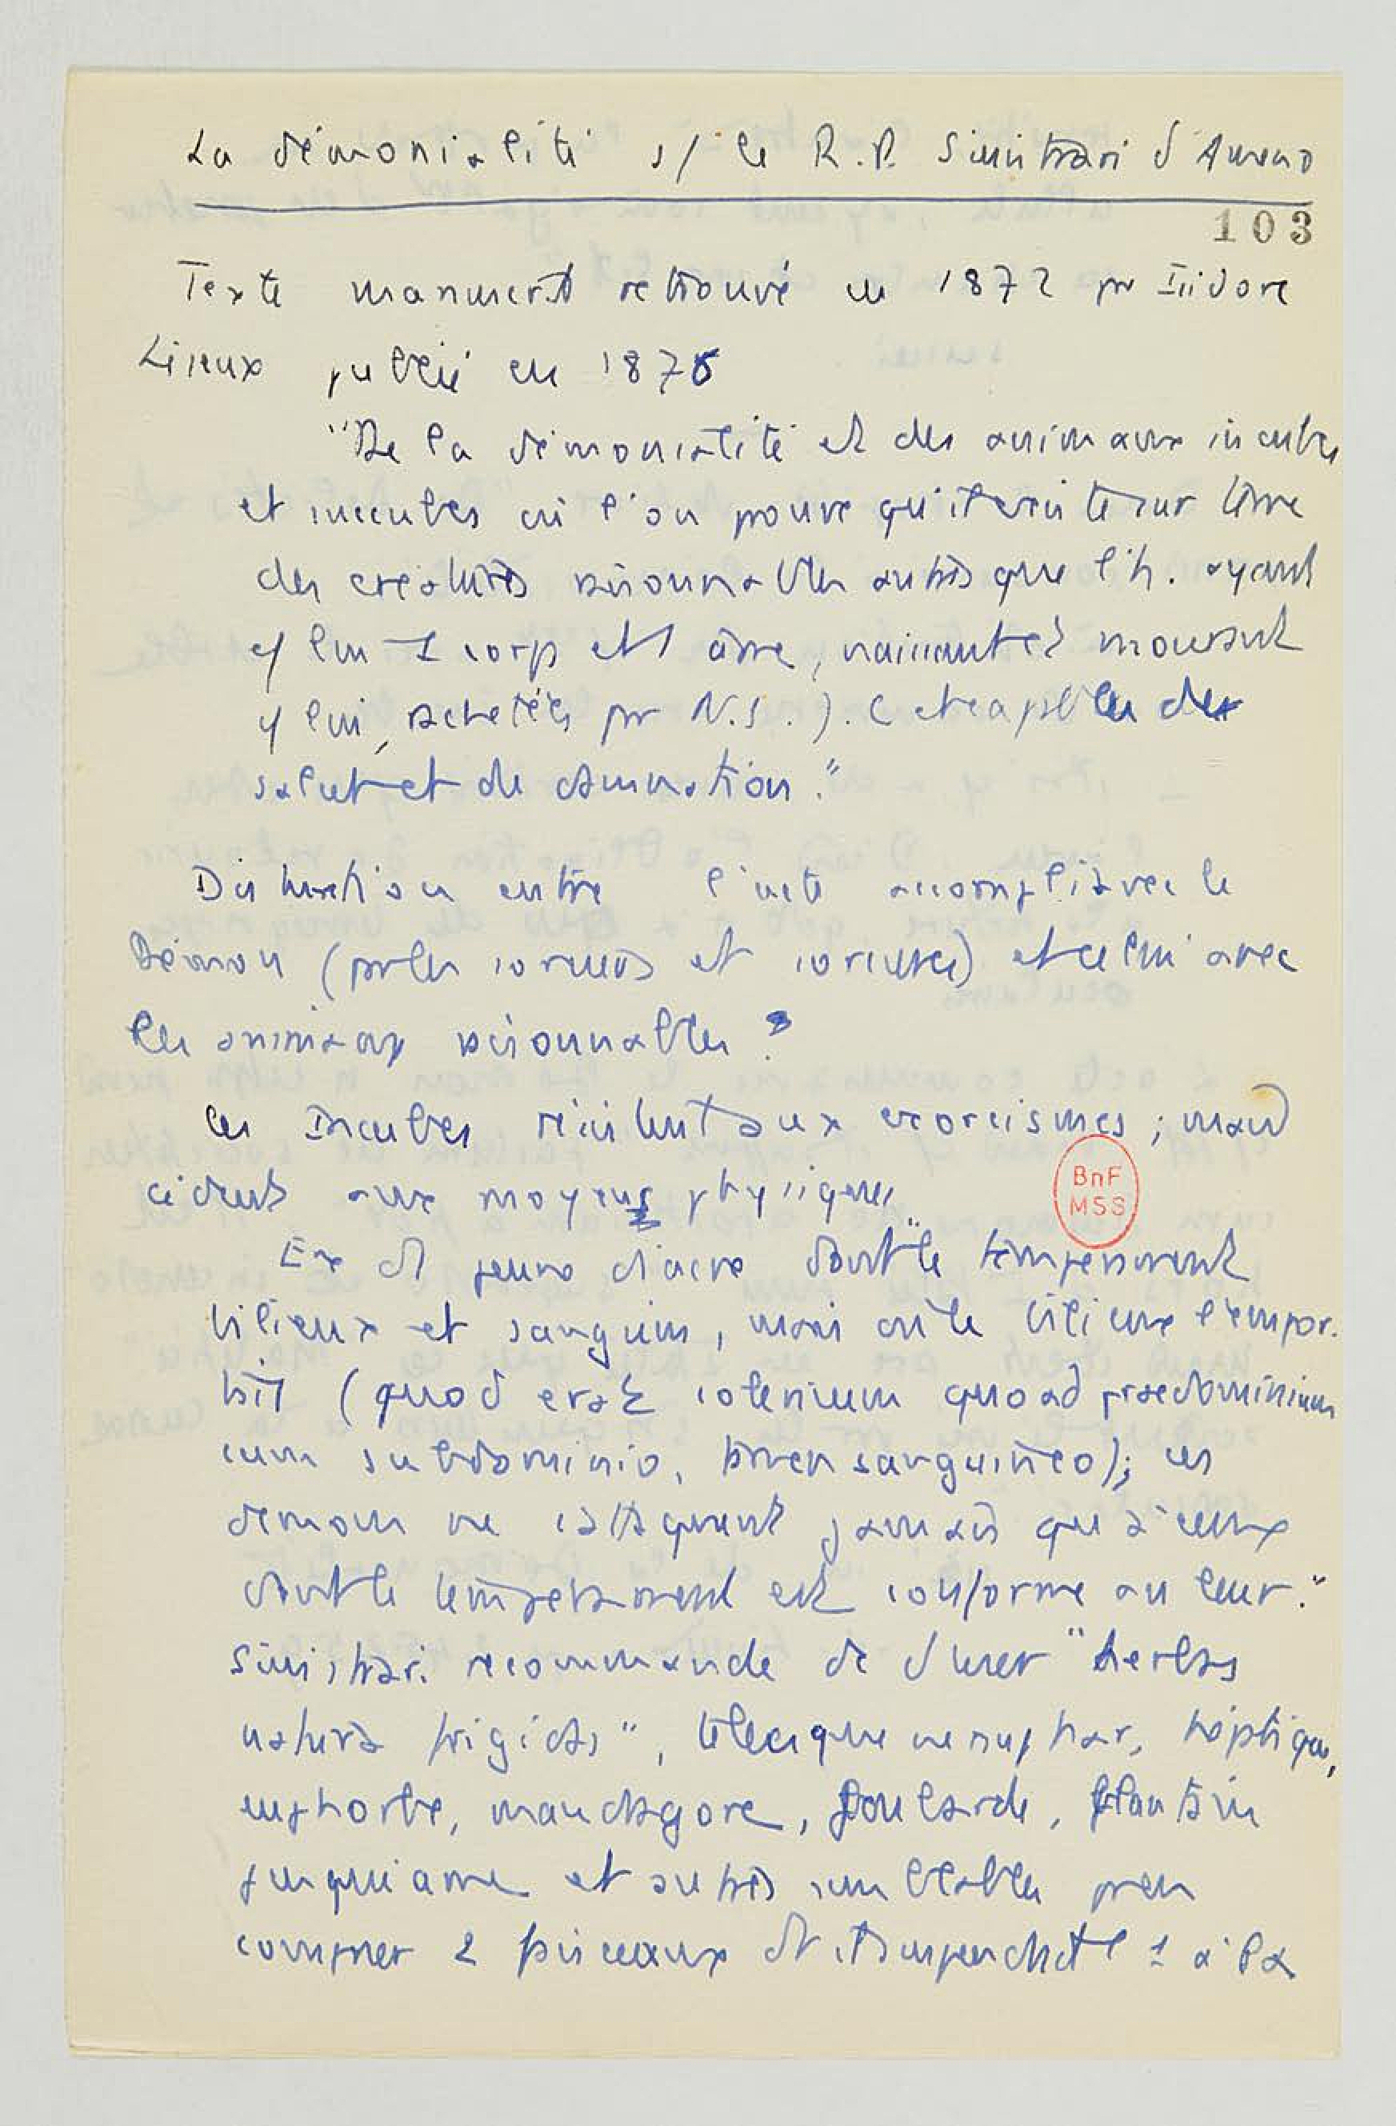 La démonialité s/ le R.P. Sinistrari d'Ameno
103
Texte manuscrit retrouvé en 1872 pr Isidore
Liseux publié en 1876
"De la démonialité et des animaux incubes
et succubes où l'on prouve qu'il existe sur terre
des créatures raisonnables autres que l'h. ayant
c/ lui 1 corps et 1 âme, naissant et mourant
c/ lui, rachetées pr N.S. J.C et capables de
salut et de damnation."
Distinction entre l'acte accompli avec le
Démon (par les sorciers et sorcières) et celui avec
les animaux raisonnables
les Incubes résistent aux exorcismes ; mais
cèdent aux moyens physiques
Ex d'1 jeune diacre dont "le tempérament
bilieux et sanguin, mais où le bilieux l'empor-
tait (quod erat colericum quoad praedominium
cum subdominio, tamen sanguineo); ces
démons ne s'attaquent jamais qu'à ceux
dont le tempérament est conforme au leur."
Sinistrari recommande de d'user "herbas
natura frigidas", telles que nenuphar, hépatique,
euphorbe, mandragore, joubarde, plantin
jusquiame et autres semblables pr en
composer 2 faisceaux et suspendit 1 à la